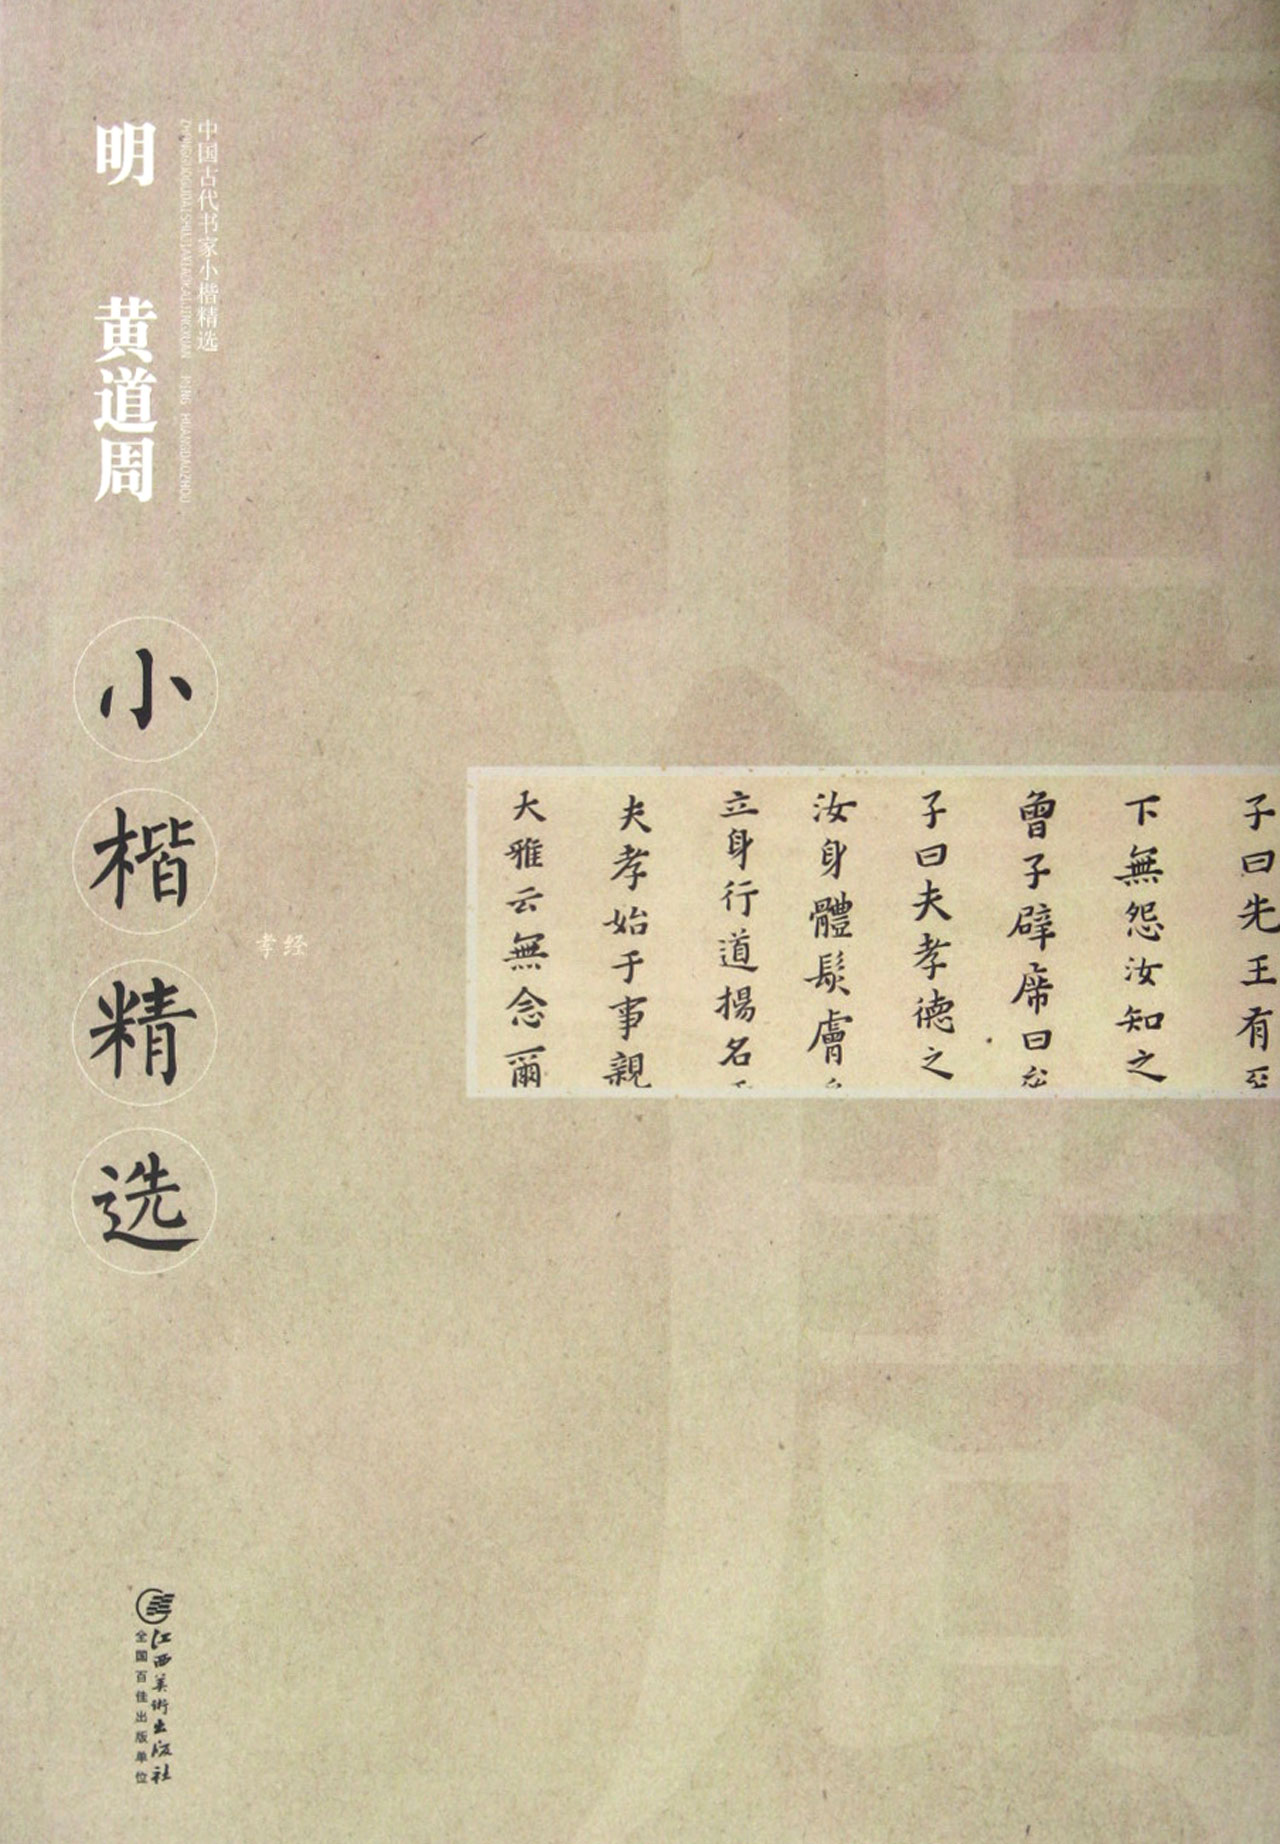 中国古代书家小楷精选
ZHONGGUOGUDAISHUJIAXIAOKAIJINGXUAN MING HUANGDAOZHOU
明 黄道周
小楷精选
孝经
子曰先王有至
下無怨汝知之
曾子辟席曰
子曰夫孝德之
汝身體髮膚
立身行道揚名
夫孝始于事親
大雅云無念爾
江西美術出版社
全国百佳出版单位